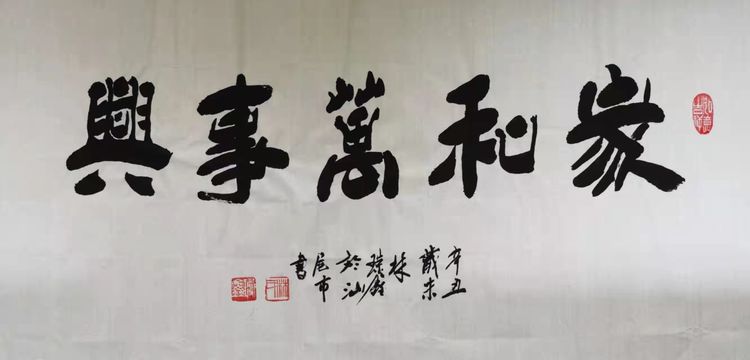 家和萬事興
辛丑
歲末
林
於汕
尾市
書